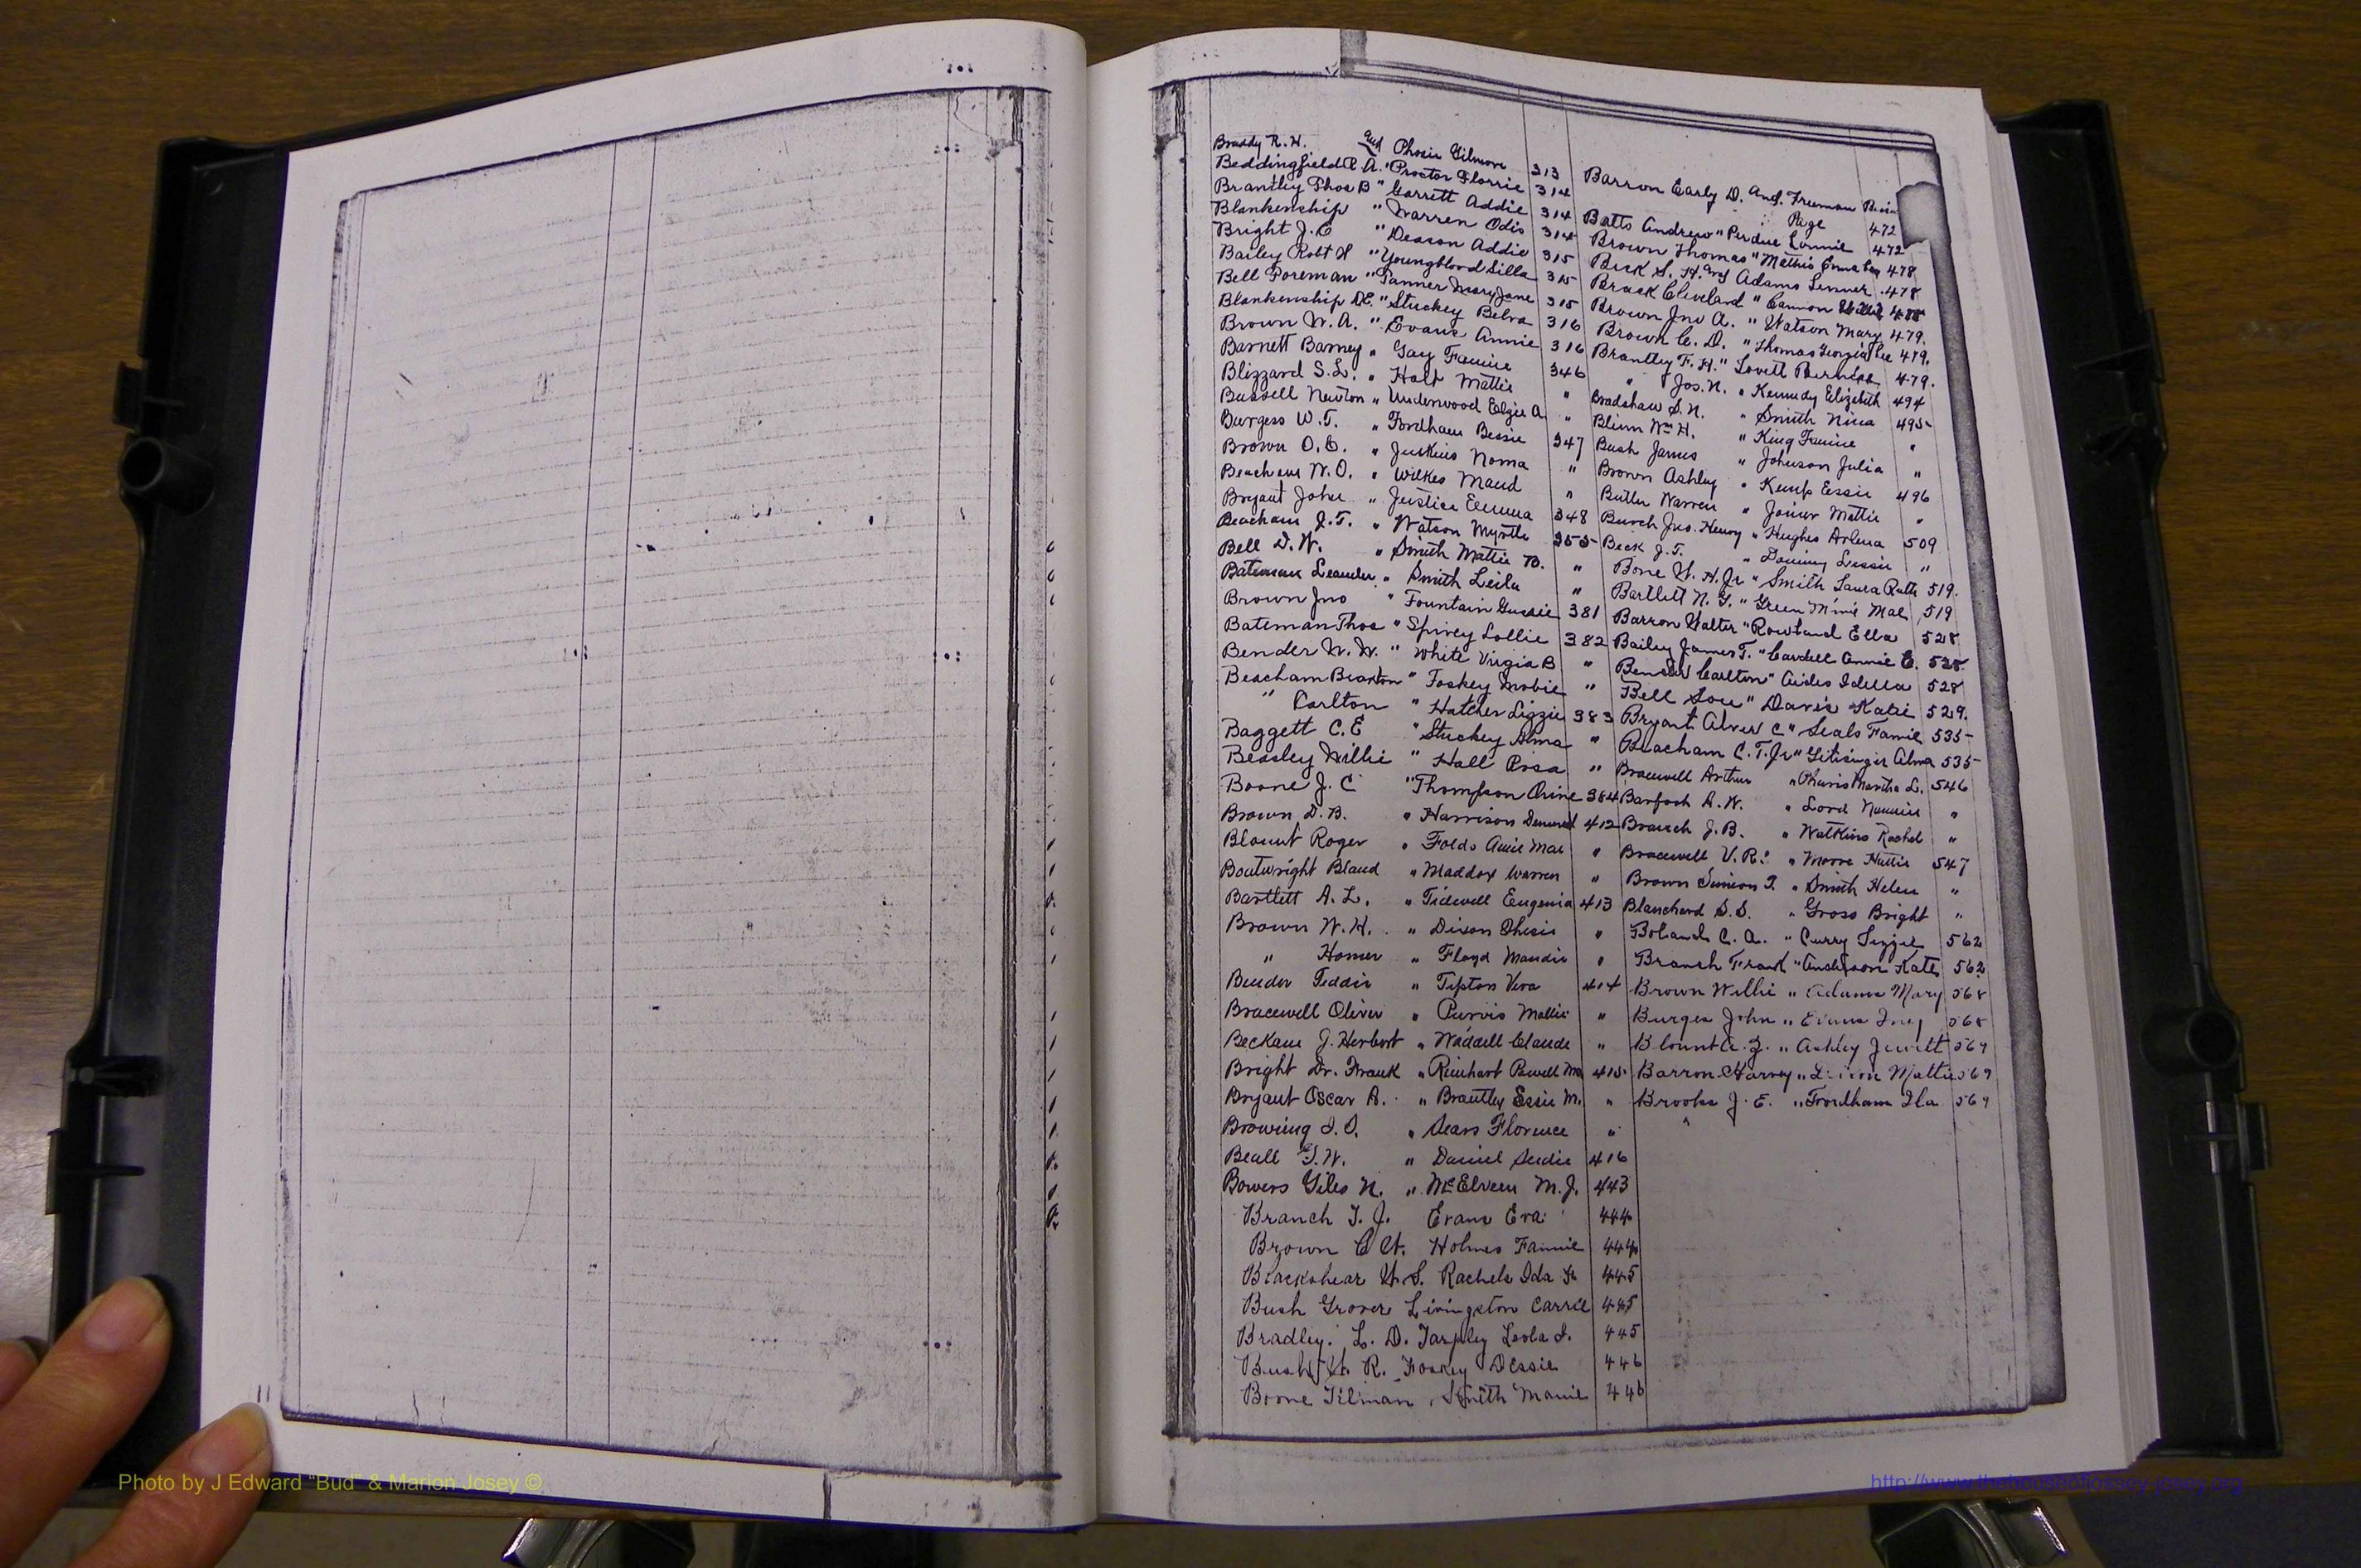 Braddy R. H. and Phosie Gilmore 313
Beddingfield R. A. " Proctor Florrie 314
Brantley Thos B " Garrett Addie 314
Blankenship " Warren Odis 314
Bright J. C " Deason Addie 315
Bailey Robt H " Youngblood Lilla 315
Bell Foreman " Tanner Mary Jane 315
Blankenship D.E. " Stuckey Belva 316
Brown W. A. " Evans Annie 316
Barnett Barney " Gay Fannie 346
Blizzard S. L. " Holt Mattie "
Bussell Newton " Underwood Elzie A. "
Burgess W. T. " Fordham Bessie 347
Brown O. C. " Juskins Noma "
Beacham W. O. " Wilkes Maud "
Bryant John " Justice Emma 348
Beacham J. T. " Watson Myrtle 355
Bell D. W. " Smith Mattie B. "
Bateman Leander " Smith Leila "
Brown Jno " Fountain Gussie 381
Bateman Thos " Spivey Lollie 382
Bender W. W. " White Virgia B "
Beacham Braxton " Foskey Mobie "
" Carlton " Hatcher Lizzie 383
Baggett C. E " Stuckey Alma "
Beasley Willie " Hall Rosa "
Boone J. C " Thompson Orine 384
Brown D. B. " Harrison 412
Blount Roger " Folds Annie Mae "
Boatwright Bland " Maddox Warren "
Bartlett A. L. " Tidwell Eugenia 413
Brown W. H. " Dixon Thesis "
" Homer " Floyd Maudie "
Bender Teddie " Tipton Vera 414
Bracewell Oliver " Purvis Mollie "
Beckam J. Herbert " Waddell Claude "
Bright Dr. Frank " Rinehart Powell 415
Bryant Oscar A. " Brantley Essie M. "
Browning I. O. " Sears Florence "
Beall T. W. " Daniel Sudie 416
Bowers Giles N. " McElveen M. J. 443
Branch T. J. Evans Eva 444
Brown C A. Holmes Fannie 444
Blackshear W. S. Rachels Ida 445
Bush Grover Livingston Carrie 445
Bradley L. D. Tarpley Leola I. 445
Bush W. R. Foskey Dessie 446
Boone Tilman Smith Mamie 446
Barron Early D. and Freeman
Page 472
Batts Andrew " Perdue Lonnie 472
Brown Thomas " Mathis Emma 478
Beck S. H. and Adams 478
Brack Cleveland " Cannon Willie 478
Brown Jno A. " Watson Mary 479.
Brown C. D. " Thomas Georgia Lee 479.
Brantley F. H. " Lovett 479.
" Jos. N. " Kennedy Elizabeth 494
Bradshaw S. N. " Smith Nina 495
Blinn Wm H. " King Fannie "
Bush James " Johnson Julia "
Brown Ashley " Kemp Essie 496
Butler Warren " Joiner Mattie "
Burch Jno. Henry " Hughes Arlena 509
Beck J. T. " Lessie "
Bone W. H. Jr " Smith Laura Ruth 519.
Bartlett N. G. " Green Minnie Mae 519
Barron Walter " Rowland Ella 528
Bailey James T. " Cardell Annie E. 528.
Bender Carlton " Idella 528
Bell Lou " Davis Katie 529.
Bryant Alver C " Seals Fannie 535
Beacham C. T. Jr " Getzinger Alma 535
Bracewell Arthur " Martha L. 546
Barfoot A. W. " Lord Nannie "
Branch J. B. " Watkins Rachel "
Bracewell V. R. " Moore Hattie 547
Brown Simion T. " Smith Helen "
Blanchard S. S. " Gross Bright "
Boland C. A. " Curry Lizzie 562
Branch Frank " Anderson Kate 562
Brown Willie " Adams Mary 568
Burges John " Evans 568
Blount A. Z. " Ashley Jewett 569
Barron Harvey " Mattie 569
Brooks J. E. " Fordham Ila 569
Photo by J Edward "Bud" & Marion Josey ©
http://www.thehouseofjossey-josey.org